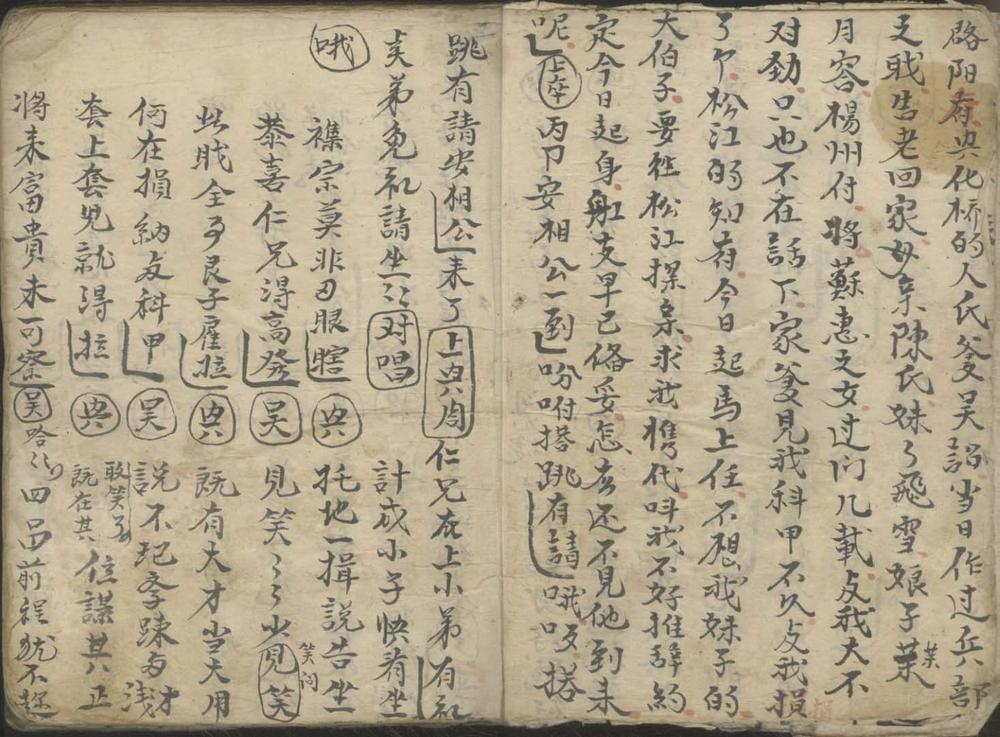 啓阳府央化桥的人氏爹吴詔当日作过兵部
支戝告老回家母亲陳氏妹〻飛雪娘子葉
月容楊州付將蘇惠之女过门几載与我大不
对劲只也不在話下家爹見我科甲不久与我損
了个松江的知府今日起馬上任不想我妹子的
大伯子要往松江探亲求我携代呌我不好推辞約
定今日起身船支早已俻妥怎広还不見他到来
呢上卒丙卩安相公一到吩咐搭跳有請哦吺搭
跳有請安相公来了上典周仁兄在上小弟有礼
夫弟免礼請坐〻对唱計成小子快看坐
哦
襍宗莫非刃眼瞎典托地一揖説告坐
恭喜仁兄得高發吴見笑〻〻少見笑
笑问
此戝全予良子雇垃典既有大才当大用
何在損納与科甲吴説不起李踈与才浅
套上套児就得拉典取笑了既在其位謀其正
將来富貴未可察吴哈〻〻四品前程犹不趂